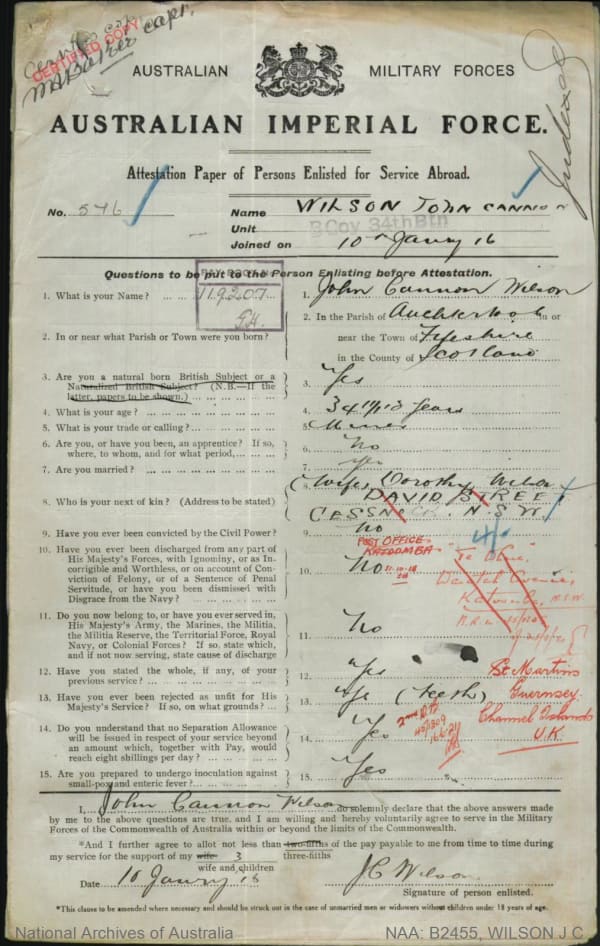 CERTIFIED COPY
AUSTRALIAN MILITARY FORCES
Indexed
AUSTRALIAN IMPERIAL FORCE.
Attestation Paper of Persons Enlisted for Service Abroad.
No. 546
Name WILSON JOHN CANNON
Unit B Coy 34th Btn
Joined on 10th Janry 16
Questions to be put to the Person Enlisting before Attestation.
PAY BOOK No.
119207
1. What is your Name? ... ... ...
1. John Cannon Wilson
2. In or near what Parish or Town were you born?
2. In the Parish of in or
near the Town of Fifeshire
in the County of Scotland
3. Are you a natural born British Subject or a
Naturalized British Subject? (N.B.—If the
latter, papers to be shown.) ... ... ... ...
3. Yes
4. What is your age? ... ... ... ... ... ...
4. 34 years
5. What is your trade or calling? ... ... ... ...
5. Miner
6. Are you, or have you been, an apprentice? If so,
where, to whom, and for what period, ... ... ...
6. No
7. Are you married? ... ... ... ... ... ...
7. yes
8. Who is your next of kin? (Address to be stated)
8. (Wife) Dorothy Wilson
DAVID STREET
CESSNOCK. N.S.W.
9. Have you ever been convicted by the Civil Power?
9. No
POST OFFICE
KATOOMBA
11.10.18
10. Have you ever been discharged from any part of
His Majesty's Forces, with Ignominy, or as In-
corrigible and Worthless, or on account of Con-
viction of Felony, or of a Sentence of Penal
Servitude, or have you been Dismissed with
Disgrace from the Navy? ... ... ... ... ...
10. No
Katoomba, N.S.W.
11. Do you now belong to, or have you ever served in,
His Majesty's Army, the Marines, the Militia,
the Militia Reserve, the Territorial Force, Royal
Navy, or Colonial Forces? If so, state which,
and if not now serving, state cause of discharge
11. No
12. Have you stated the whole, if any, of your
previous service? ... ... ... ... ... ...
12. Yes
St Martins
Guernsey.
Channel Islands
U.K.
13. Have you ever been rejected as unfit for His
Majesty's Service? If so, on what grounds? ...
13. Yes (teeth)
14. Do you understand that no Separation Allowance
will be issued in respect of your service beyond
an amount which, together with Pay, would
reach eight shillings per day? ... ... ... ...
14. Yes
15. Are you prepared to undergo inoculation against
small-pox and enteric fever? ... ... ... ...
15. Yes
I, John Cannon Wilson do solemnly declare that the above answers made
by me to the above questions are true, and I am willing and hereby voluntarily agree to serve in the Military
Forces of the Commonwealth of Australia within or beyond the limits of the Commonwealth.
*And I further agree to allot not less than two-fifths of the pay payable to me from time to time during
my service for the support of my wife 3 three-fifths
wife and children
Date 10 Janry 16
J C Wilson
Signature of person enlisted.
*This clause to be amended where necessary and should be struck out in the case of unmarried men or widowers without children under 18 years of age.
National Archives of Australia
NAA: B2455, WILSON J C